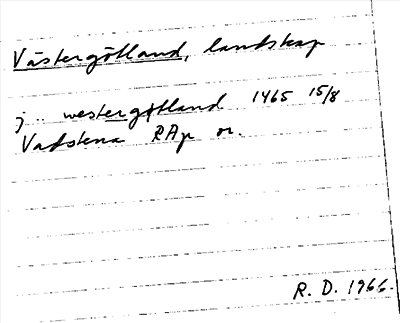 Västergötland, landskap
j .. westergøtland 1465 15/8
Vadstena RAp or.
R. D. 1966.